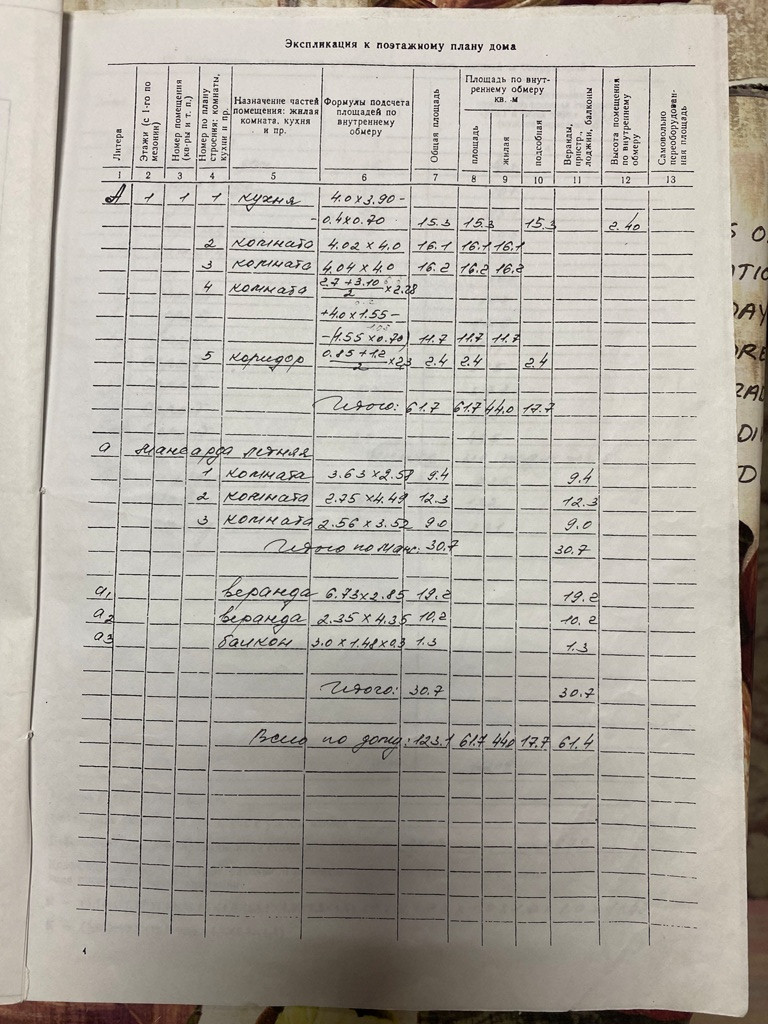 Экспликация к поэтажному плану дома
Литера
Этажи (с 1-го по мезонин)
Номер помещения (кв-ры и т. п.)
Номер по плану строения: комнаты, кухни и пр.
Назначение частей помещения: жилая комната, кухня и пр.
Формулы подсчета площадей по внутреннему обмеру
Общая площадь
Площадь по внутреннему обмеру кв. м
площадь
жилая
подсобная
Веранды, пристр., лоджии, балконы
Высота помещения по внутреннему обмеру
Самовольно переоборудованная площадь
1 2 3 4 5 6 7 8 9 10 11 12 13
А 1 1 1 кухня 4.0 x 3.90 -
- 0.4 x 0.70 15.3 15.3 15.3 2.40
2 комната 4.02 x 4.0 16.1 16.1 16.1
3 комната 4.04 x 4.0 16.2 16.2 16.2
4 комната 2.7 + 3.10 / 2 x 2.28
+ 4.0 x 1.55 -
- (1.55 x 0.70) 11.7 11.7 11.7
5 коридор 0.85 + 1.2 / 2 x 2.3 2.4 2.4 2.4
Итого: 61.7 61.7 44.0 17.7
а мансарда летняя
1 комната 3.63 x 2.59 9.4 9.4
2 комната 2.75 x 4.49 12.3 12.3
3 комната 2.56 x 3.52 9.0 9.0
Итого по манс. 30.7 30.7
а1 веранда 6.73 x 2.85 19.2 19.2
а2 веранда 2.35 x 4.35 10.2 10.2
а3 балкон 3.0 x 1.48 x 0.3 1.3 1.3
Итого: 30.7 30.7
Всего по дому: 123.1 61.7 44.0 17.7 61.4
4